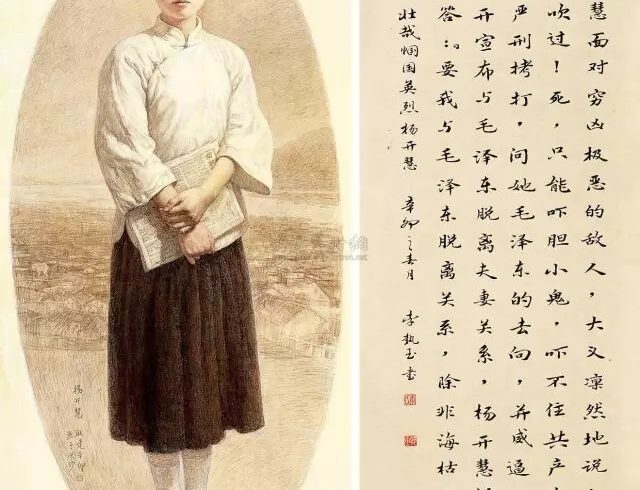 慧面对穷凶极恶的敌人，大义凛然地说
吹过！死，只能吓胆小鬼，吓不住共产
严刑拷打，问她毛泽东的去向，并威逼
开宣布与毛泽东脱离夫妻关系，杨开慧
答：要我与毛泽东脱离关系，除非海枯
壮哉帼国英烈杨开慧 辛卯之春月 李执玉书
杨开慧